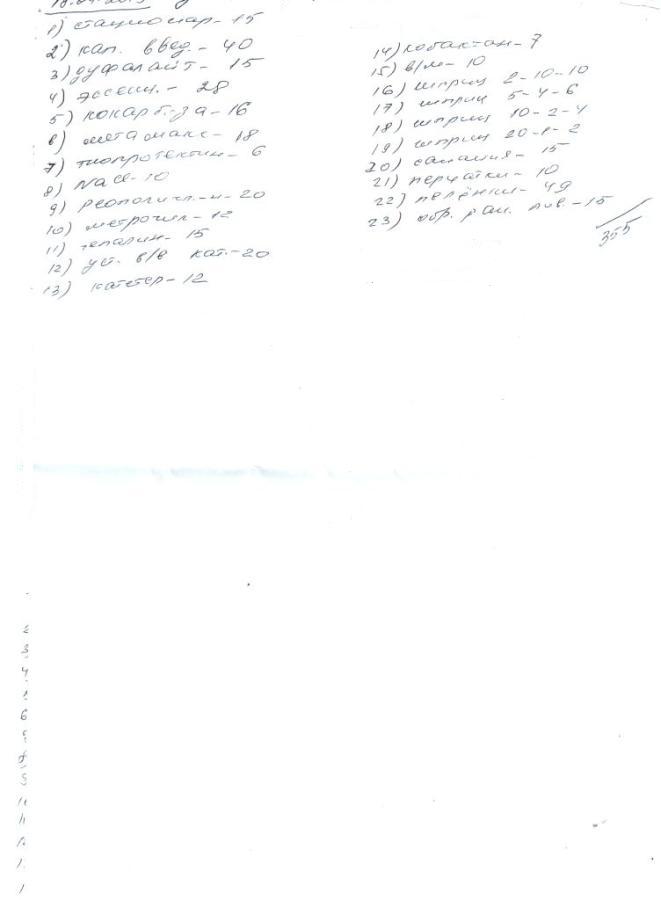 1) стационар - 15
2) кап. введ. - 40
3) дуфалайт - 15
4) эссенц. - 28
5) кокарб-за - 16
6) метамакс - 18
7) тиопротектин - 6
8) NaCl - 10
9) реополигл.-н - 20
10) метрогил - 12
11) гепарин - 15
12) уст. в/в кат. - 20
13) катетер - 12
14) кобактан - 7
15) в/м - 10
16) шприц 2 - 10 - 10
17) шприц 5 - 4 - 6
18) шприц 10 - 2 - 4
19) шприц 20 - 1 - 2
20) - 15
21) перчатки - 10
22) пелёнки - 49
23) обр. ран. - 15
355